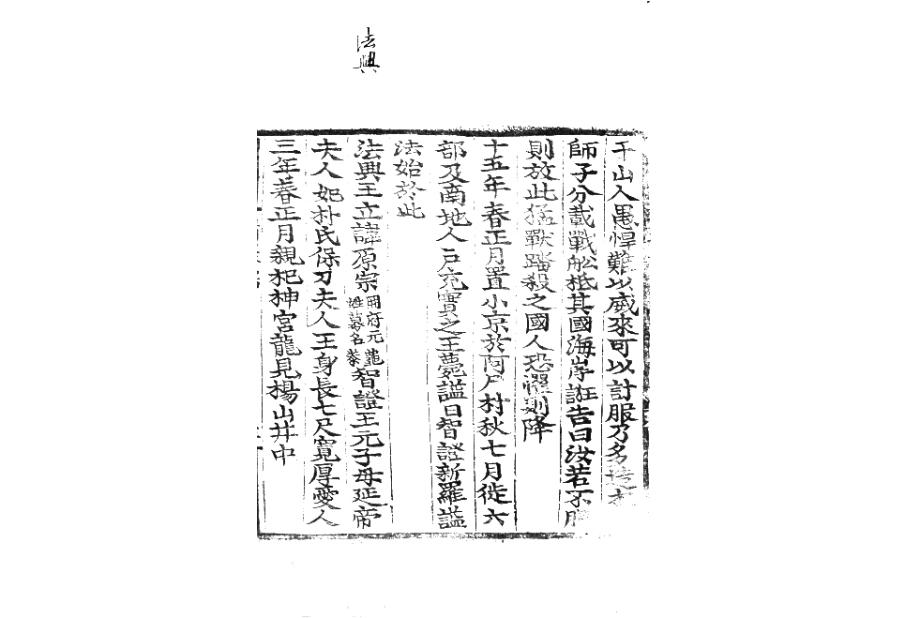 法興
于山人愚悍難以威來可以計服乃多造木
師子分載戰舩抵其國海岸誑告曰汝若不服
則放此猛獸踏殺之國人恐懼則降
十五年春正月置小京於阿尸村秋七月徙六
部及南地人戶充實之王薨諡曰智證新羅諡
法始於此
法興王立諱原宗 冊府元龜姓募名秦 智證王元子母延帝
夫人妃朴氏保刀夫人王身長七尺寬厚愛人
三年春正月親祀神宮龍見楊山井中